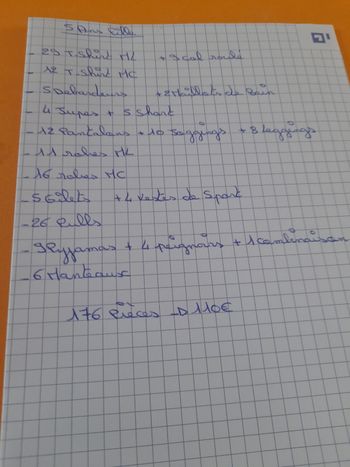 5 Ans Fille
- 29 T-Shirt ML + 3 col roulé
- 12 T-Shirt MC
- 5 Debardeurs + 2 Maillots de Bain
- 4 Jupes + 5 Short
- 12 Pantalons + 10 Joggings + 8 Leggings
- 11 robes ML
- 16 robes MC
- 5 Gilets + 4 Vestes de Sport
- 26 Pulls
- 9 Pyjamas + 4 peignoirs + 1 combinaison
- 6 Manteaux
176 Pièces → 110€